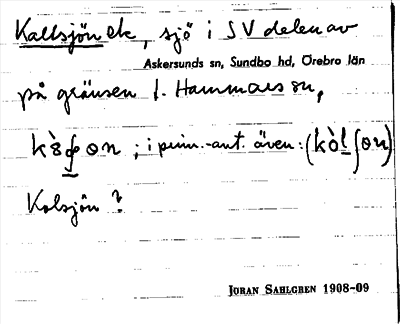 Kallsjön ek, sjö i SV delen av
Askersunds sn, Sundbo hd, Örebro län
på gränsen t. Hammars sn,
; i prim.-ant. även:
Kolsjön?
JÖRAN SAHLGREN 1908-09